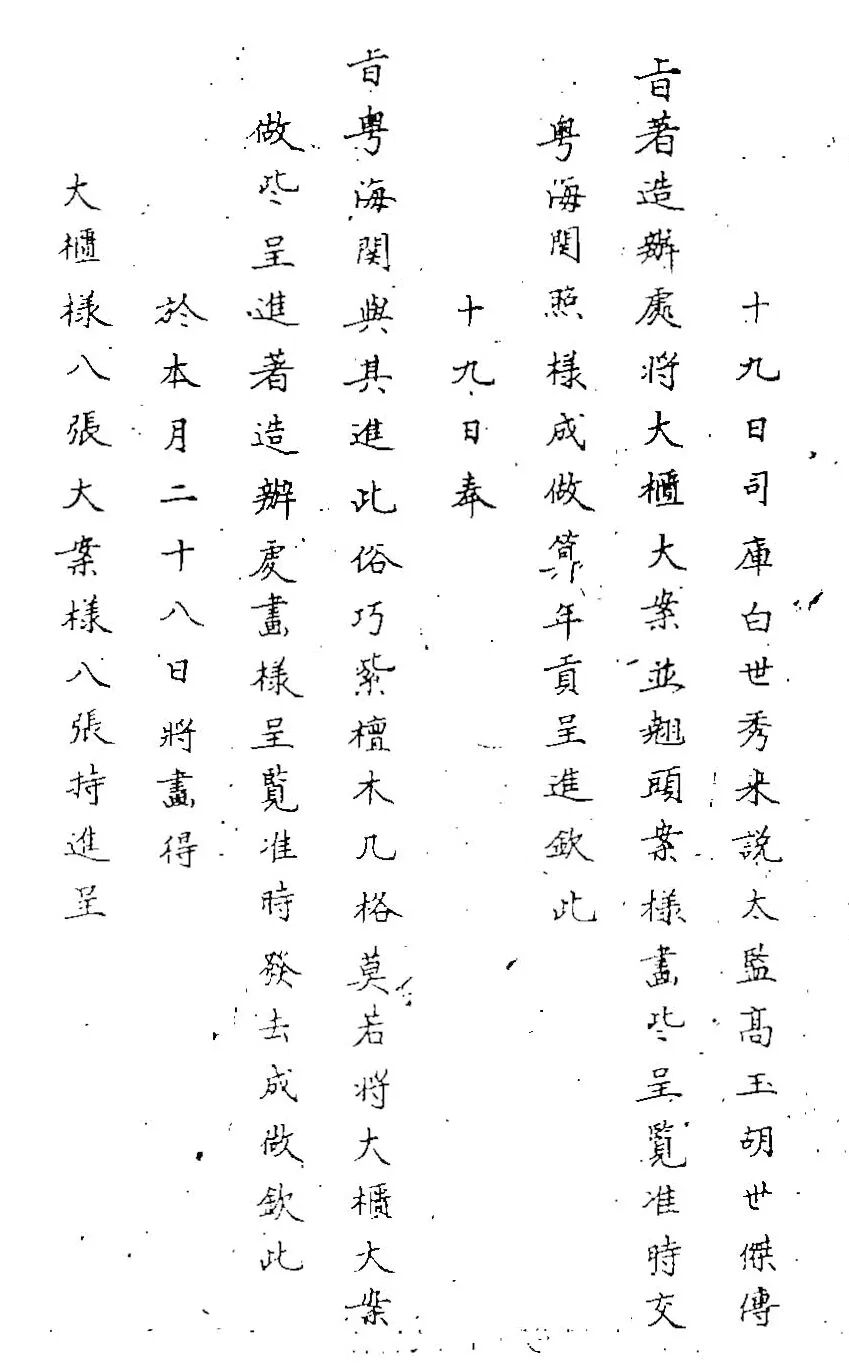 十九日司庫白世秀来説太監髙玉胡世傑傳
旨著造辦處將大櫃大案並翹頭案樣畫些呈覽准時交
粤海関照樣成做算年貢呈進欽此
十九日奉
旨粤海関與其進此俗巧紫檀木几格莫若將大櫃大案
做些呈進著造辦處畫樣呈覽准時發去成做欽此
於本月二十八日將畫得
大櫃樣八張大案樣八張持進呈